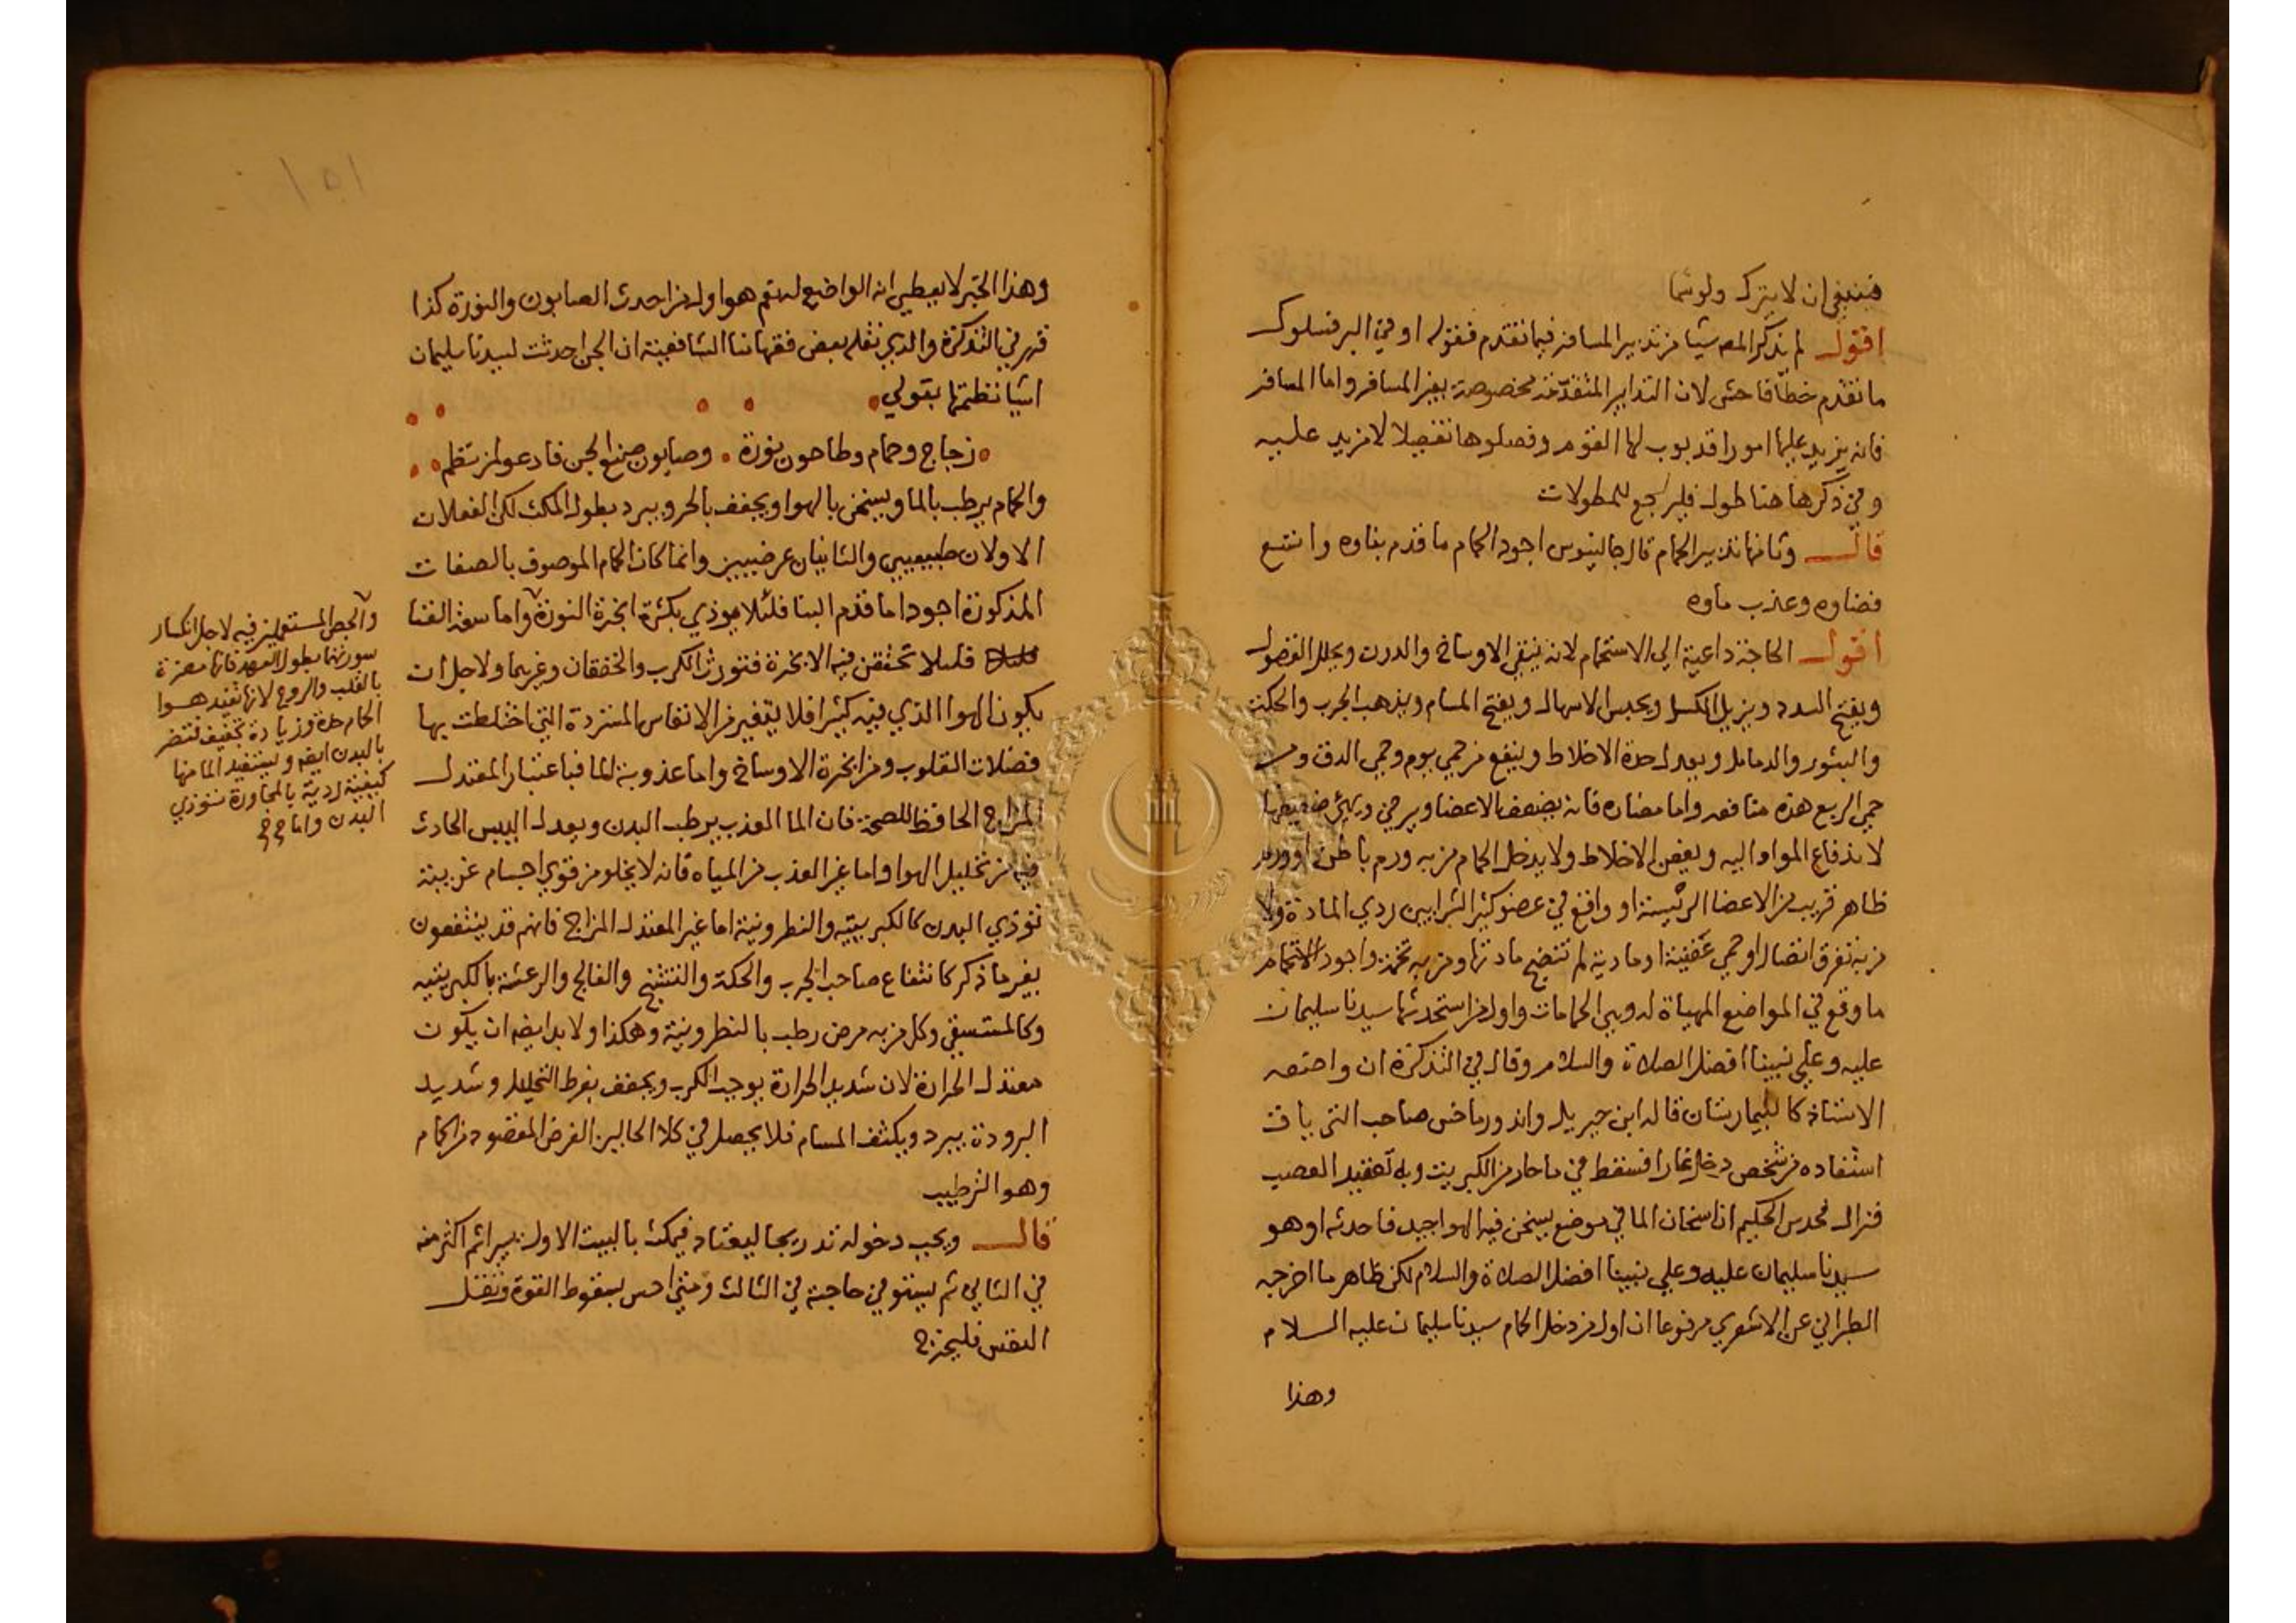 فينبغي ان لا يترك ولو شما
اقول لم يذكر المص شيا من تدبير المسافر فيما تقدم فقوله او في البر فسلوك
ما تقدم خطا فاحش لان التدابير المتقدمة مخصوصة بغير المسافر واما المسافر
فانه يزيد عليها امورا قد بوب لها القوم وفصلوها تفصيلا لا مزيد عليه
وفي ذكرها هنا طول فليرجع للمطولات
قال وثانيها تدبير الحمام قال جالينوس اجود الحمام ما قدم بناوه واتسع
فضاوه وعذب ماوه
اقول الحاجة داعية الي الاستحمام لانه ينقي الاوساخ والدرن ويحلل الفضول
ويفتح السدد ويزيل الكسل ويحبس الاسهال ويفتح المسام ويذهب الجرب والحكة
والبثور والدمامل ويعدل حدة الاخلاط وينفع من حمي يوم وحمي الدق ومن
حمي الربع هذه منافعه واما مضاره فانه يضعف الاعضا ويرخي ويهئ ضعيفها
لاندفاع المواد اليه ويعفن الاخلاط ولا يدخل الحمام من به ورم باطن او ورم
ظاهر قريب من الاعضا الرئيسة او واقع في عضو كثير الشرايين ردي المادة ولا
من به تفرق اتصال او حمي عفنية او مادية لم تنضج مادتها ومن به تخمة واجود الاستحمام
ما وقع في المواضع المهياة له وهي الحمامات واول من استحدثها سيدنا سليمان
عليه وعلي نبينا افضل الصلاة والسلام وقال في التذكرة ان واضعه
الاستاذ كالبيمارستان قاله ابن جبريل واندروماخس صاحب الترياق
استفاده من شخص دخل غارا فسقط في ما حار من الكبريت وبه تعقيد العصب
فزال فحدس الحكيم ان اسخان الما في موضع يسخن فيه الهوا جيد فاحدثه او هو
سيدنا سليمان عليه وعلي نبينا افضل الصلاة والسلام لكن ظاهر ما اخرجه
الطبراني عن الاشعري مرفوعا ان اول من دخل الحمام سيدنا سليمان عليه السلام
وهذا
١٥١
وهذا الخبر لا يعطي انه الواضع له نعم هو اول من احدث الصابون والنورة كذا
قرر في التذكرة والذي نقله بعض فقهائنا الشافعية ان الجن احدثت لسيدنا سليمان
اشيا نظمتها بقولي
زجاج وحمام وطاحون نورة وصابون صنع الجن فادعو لمن نظم
والحمام يرطب بالما ويسخن بالهوا ويجفف بالحر ويبرد بطول المكث لكن الفعلان
الاولان طبيعيين والثانيان عرضيين وانما كان الحمام الموصوف بالصفات
المذكورة اجود اما قدم البنا فلئلا يوذي بكثرة ابخرة النورة واما سعة الفنا
فليلا تحتقن فيه الابخرة فتورث الكرب والخفقان وغيرهما ولاجل ان
يكون الهوا الذي فيه كثيرا فلا يتغير من الانفاس المستردة التي اختلطت بها
فضلات القلوب ومن ابخرة الاوساخ واما عذوبة الما فباعتبار المعتدل
المزاج الحافظ للصحة فان الما العذب يرطب البدن ويعدل اليبس الحادث
فيه من تحليل الهوا واما غير العذب من المياه فانه لا يخلو من قوي اجسام غريبة
توذي البدن كالكبريتيه والنطرونية اما غير المعتدل المزاج فانهم قد ينتفعون
بغير ما ذكر كانتفاع صاحب الجرب والحكة والتشنج والفالج والرعشة بالكبريتيه
وكالمستسقي وكل من به مرض رطب بالنطرونية وهكذا ولا بد ايضا ان يكون
معتدل الحرارة لان شديد الحرارة يوجب الكرب ويجفف بفرط التحليل وشديد
البرودة يبرد ويكثف المسام فلا يحصل في كلا الحالين الغرض المقصود من الحمام
وهو الترطيب
قال ويجب دخوله تدريجا ليعتاد فيمكث بالبيت الاول يسيرا ثم اكثر منه
في الثاني ثم يستوفي حاجته في الثالث ومتي احس بسقوط القوة وثقل
النفس فليخرج
والجص المستعملين فيه لاجل انكسار
سورتهما بطول العهد فانها مضرة
بالقلب والروح لانها تفيد هوا
الحمام حدة وزيادة تجفيف فتضر
بالبدن ايضا ويستفيد الما منها
كيفية ردية بالمجاورة فتوذي
البدن واما